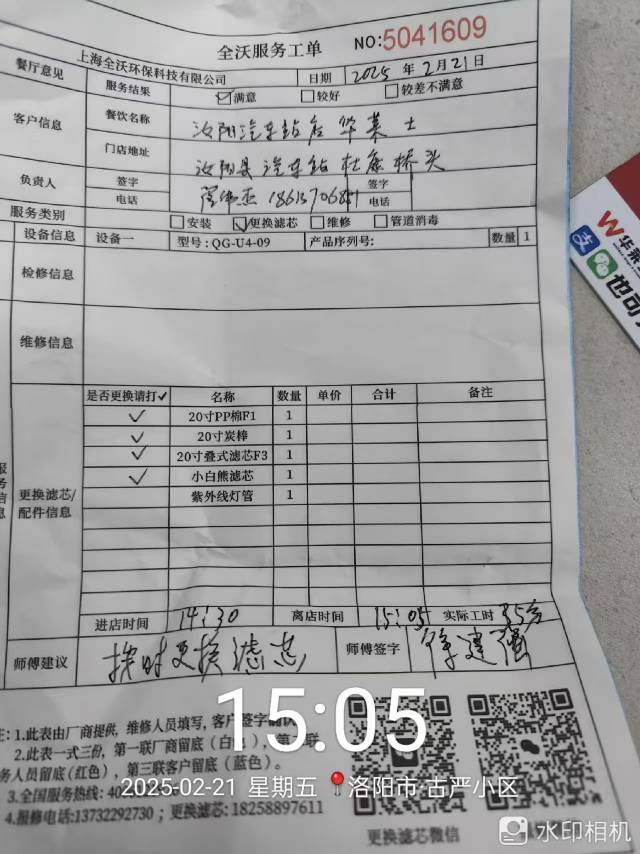 全沃服务工单 NO:5041609
餐厅意见 上海全沃环保科技有限公司 日期 2025年2月21日
服务结果 ☑满意 □较好 □较差不满意
客户信息 餐饮名称 汝阳汽车站店华莱士
门店地址 汝阳县汽车站杜康桥头
负责人 签字 签字
电话 电话
服务类别 □安装 ☑更换滤芯 □维修 □管道消毒
设备信息 设备一 型号:QG-U4-09 产品序列号: 数量 1
检修信息
维修信息
是否更换请打✓ 名称 数量 单价 合计 备注
✓ 20寸PP棉F1 1
✓ 20寸炭棒 1
✓ 20寸叠式滤芯F3 1
✓ 小白熊滤芯 1
紫外线灯管 1
更换滤芯/
配件信息
进店时间 14:30 离店时间 15:05 实际工时 35分
师傅建议 按时更换滤芯 师傅签字 徐建强
15:05
:1.此表由厂商提供, 维修人员填写, 客户签字确认
2.此表一式三份, 第一联厂商留底(白色), 第二联
务人员留底(红色), 第三联客户留底(蓝色)。
3.全国服务热线: 40
2025-02-21 星期五 洛阳市·古严小区
4.报修电话:13732292730; 更换滤芯:18258897611
更换滤芯微信
水印相机
W 华莱
支
也可